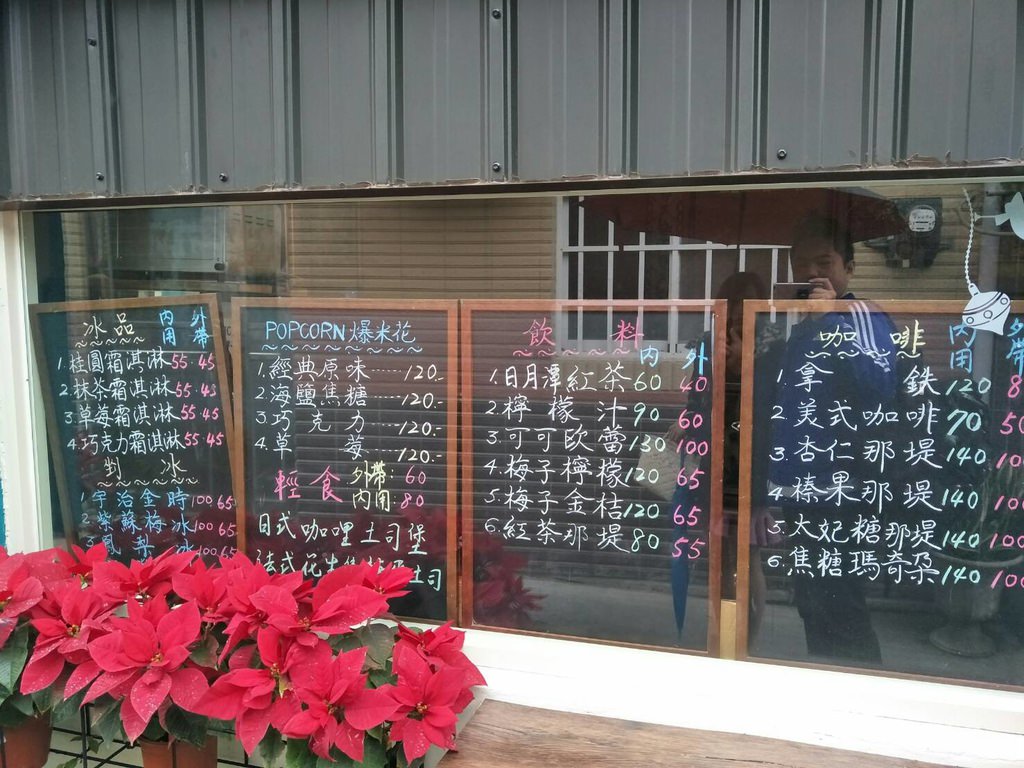 冰品 內用 外帶
1.桂圓霜淇淋 55 45
2.抹茶霜淇淋 55 45
3.草莓霜淇淋 55 45
4.巧克力霜淇淋 55 45
剉冰
1.宇治金時 100 65
2.紫蘇梅冰 100 65
3.鳳梨冰 100 65
POPCORN 爆米花
1.經典原味 120.-
2.海鹽焦糖 120.-
3.巧克力 120.-
4.草莓 120.-
輕食 外帶:60
內用:80
日式咖哩土司堡
法式花生
土司
飲料
內 外
1.日月潭紅茶 60 40
2.檸檬汁 90 60
3.可可歐蕾 130 100
4.梅子檸檬 120 65
5.梅子金桔 120 65
6.紅茶那堤 80 55
咖啡 內用 外帶
1.拿鉄 120 8
2.美式咖啡 70 50
3.杏仁那堤 140 100
4.榛果那堤 140 100
5.太妃糖那堤 140 100
6.焦糖瑪奇朵 140 100